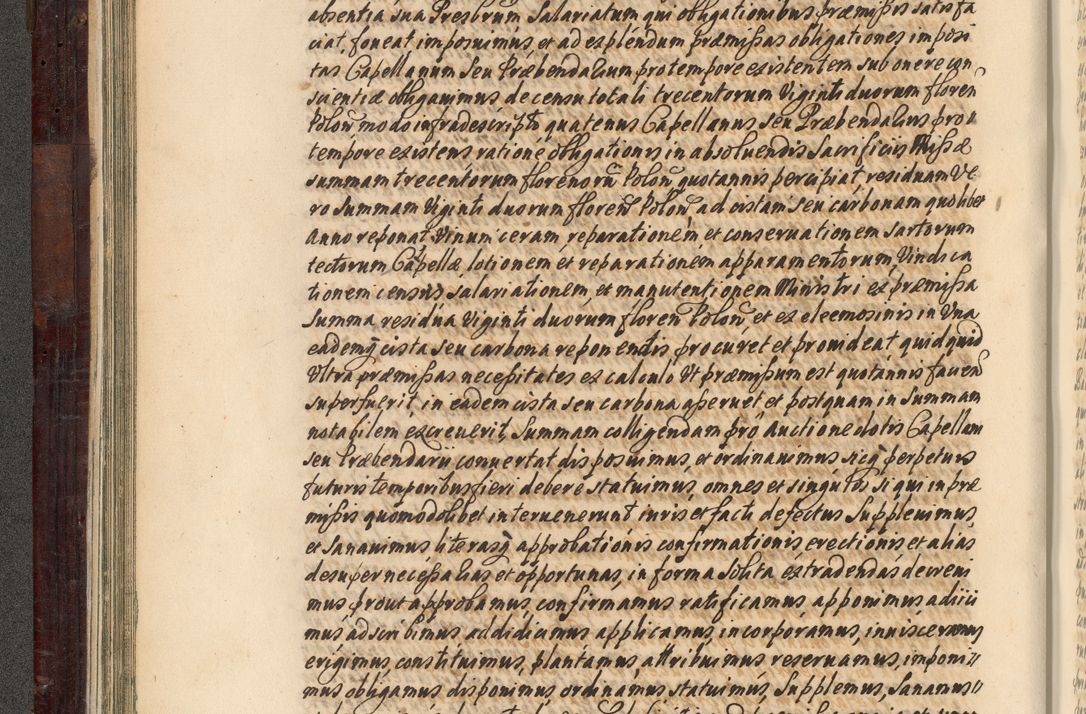 absentia sua Presbrum Salariatum qui obligationibus præmissis satisfa
ciat, foueat imposuimus, et ad explendum præmissas obligationes imposi
tas Capellanum seu Præbendarium pro tempore existentem sub onere con
scientiæ obligauimus, de censu totali trecentorum Viginti duorum floren
Polon modo infradescripto quatenus Capellanus seu Præbendarius pro
tempore existens ratione obligationis in absoluendis Sacrificiis Missæ
summam trecentorum florenorū Polon quotannis percipiat, residuam Ve
ro Summam Viginti duorum floren Polon, ad cistam seu carbonam quolibet
Anno reponat, Vinum ceram, reparationem et conseruationem sartorum
tectorum Capellæ lotionem et reparationem apparamentorum, Vindica
tionem census salariationem, et manutentionem Ministri ex præmissa
Summa residua Viginti duorum floren Polon, et ex eleemosinis in Una
eademq cista seu carbona reponendis procuret et prouideat quidquid
Ultra præmissas necessitates ex calculo Ut præmissum est quotannis faciend
superfuerit, in eadem cista seu carbona asseruet et postquam in Summam
notabilem excreuerit, Summam colligendam pro Auctione dotis Capellani
seu Præbendarii conuertat disposuimus, et ordinauimus sicq perpetuis
futuris temporibus fieri debere statuimus, omnes et singulos si qui in præ
missis quomodolibet interuenerunt iuris et facti defectus Suppleuimus,
et Sanauimus literasq approbationis confirmationis erectionis et alias
desuper necessarias et opportunas, in forma solita extradendas decreui
mus, prout approbamus, confirmamus ratificamus, apponimus, adiici
mus, adscribimus, addidicimus applicamus, incorporamus, inuisceramus,
erigimus, constituimus, plantamus, attribuimus reseruamus, imponi//
mus obligamus disponimus, ordinamus statuimus, Supplemus, Sanamus//